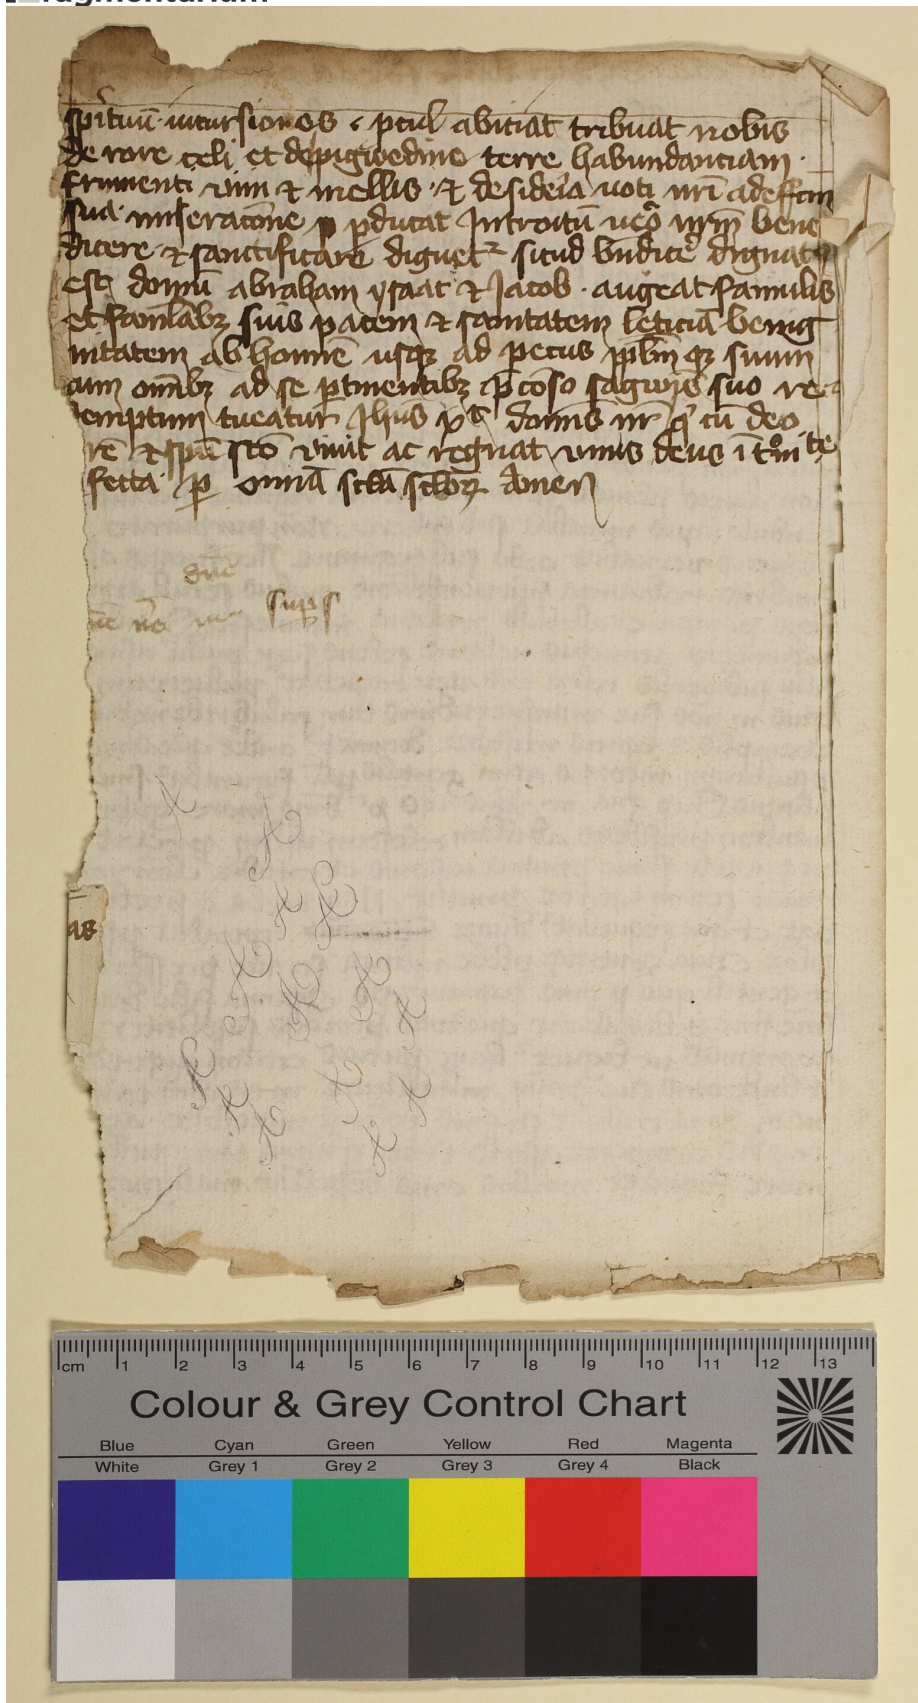 fragmentarium
sp̄ituū incursiones ⁊ pcul abiciat tribuat nobis
de rore celi et de pigwedine terre habundanciam ·
frumenti vini ⁊ mellis · ⁊ desideia voti nr̄i ad effm
sua miseracōne pducat Introitū nrm̄ bene
dicere ⁊ sanctificare dignet² sicud bn̄dicē dignat
est domū abraham ysaac ⁊ Jacob · augeat famulis
et famlabꝫ suis pacem ⁊ sanitatem leticiā benig
nitatem ab hoīnē usqꝫ ad pecus pplm̄ qꝫ suum
cum omībꝫ ad se ptinentibꝫ p̄cōso sagwīe suo re
emptum tueatur Jhus xp̄c dom̄s nr̄ q̄ cū deo
rē ⁊ spū scō viuit ac regnat vnus deus ī t̊nite
fecta ꝑ om̄ā sclā sclorꝫ Amen
dn̄e
sups
as
cm 1 2 3 4 5 6 7 8 9 10 11 12 13
Colour & Grey Control Chart
Blue Cyan Green Yellow Red Magenta
White Grey 1 Grey 2 Grey 3 Grey 4 Black